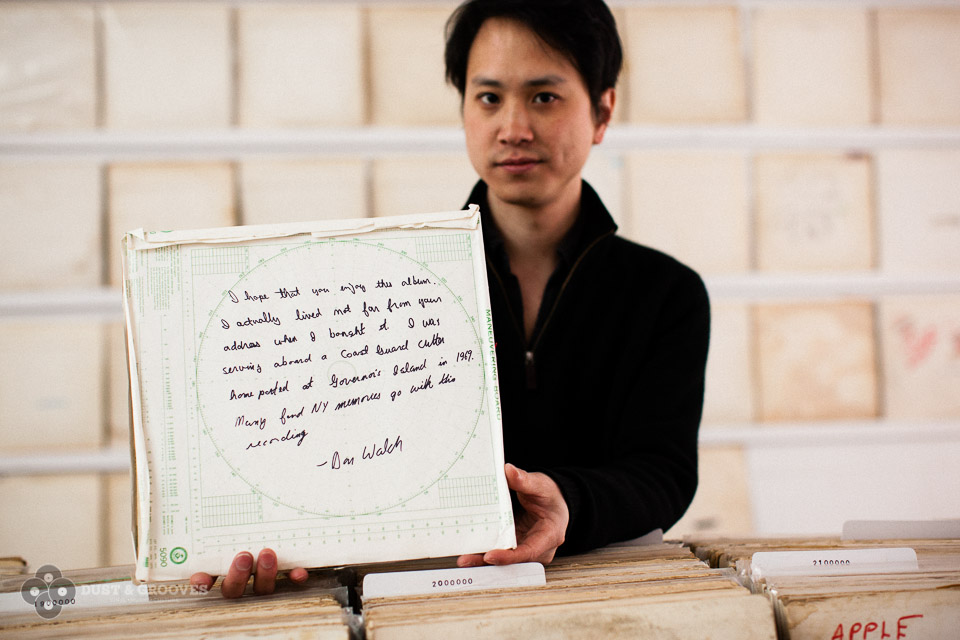 I hope that you enjoy this album.
I actually lived not far from your
address when I bought it. I was
serving aboard a Coast Guard Cutter
home ported at Governor's Island in 1969.
Many fond NY memories go with this
recording
- Don Walch
MANEUVERING BOARD
5090
1000000
2000000
2100000
APPLE
DUST & GROOVES